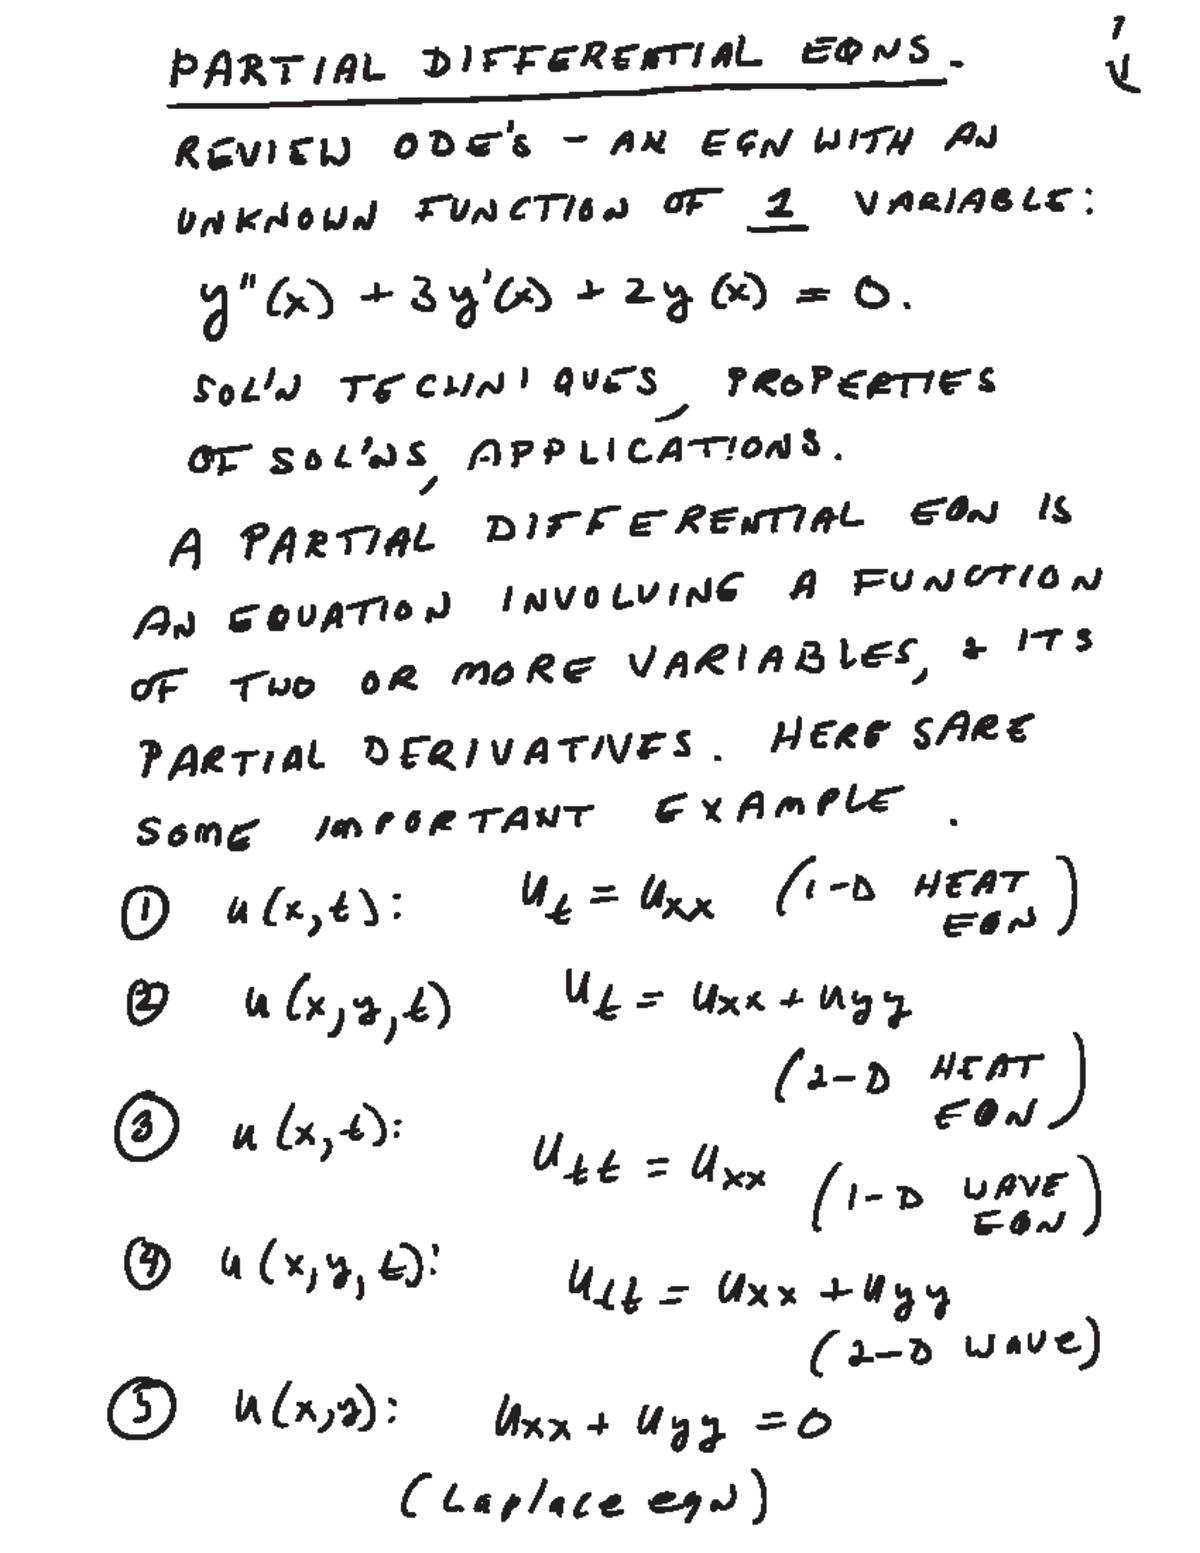 PARTIAL DIFFERENTIAL EQNS.
1
REVIEW ODE'S - AN EQN WITH AN
UNKNOWN FUNCTION OF 1 VARIABLE:
y"(x) + 3y'(x) + 2y(x) = 0.
SOL'N TECHNIQUES, PROPERTIES
OF SOL'NS, APPLICATIONS.
A PARTIAL DIFFERENTIAL EQN IS
AN EQUATION INVOLVING A FUNCTION
OF TWO OR MORE VARIABLES, & ITS
PARTIAL DERIVATIVES. HERE SARE
SOME IMPORTANT EXAMPLE .
① u(x,t): u_t = u_xx (1-D HEAT EQN)
② u(x,y,t) u_t = u_xx + u_yy
(2-D HEAT EQN)
③ u(x,t):
u_tt = u_xx (1-D WAVE EQN)
④ u(x,y,t): u_tt = u_xx + u_yy
(2-D wave)
⑤ u(x,y): u_xx + u_yy = 0
(Laplace eqn)